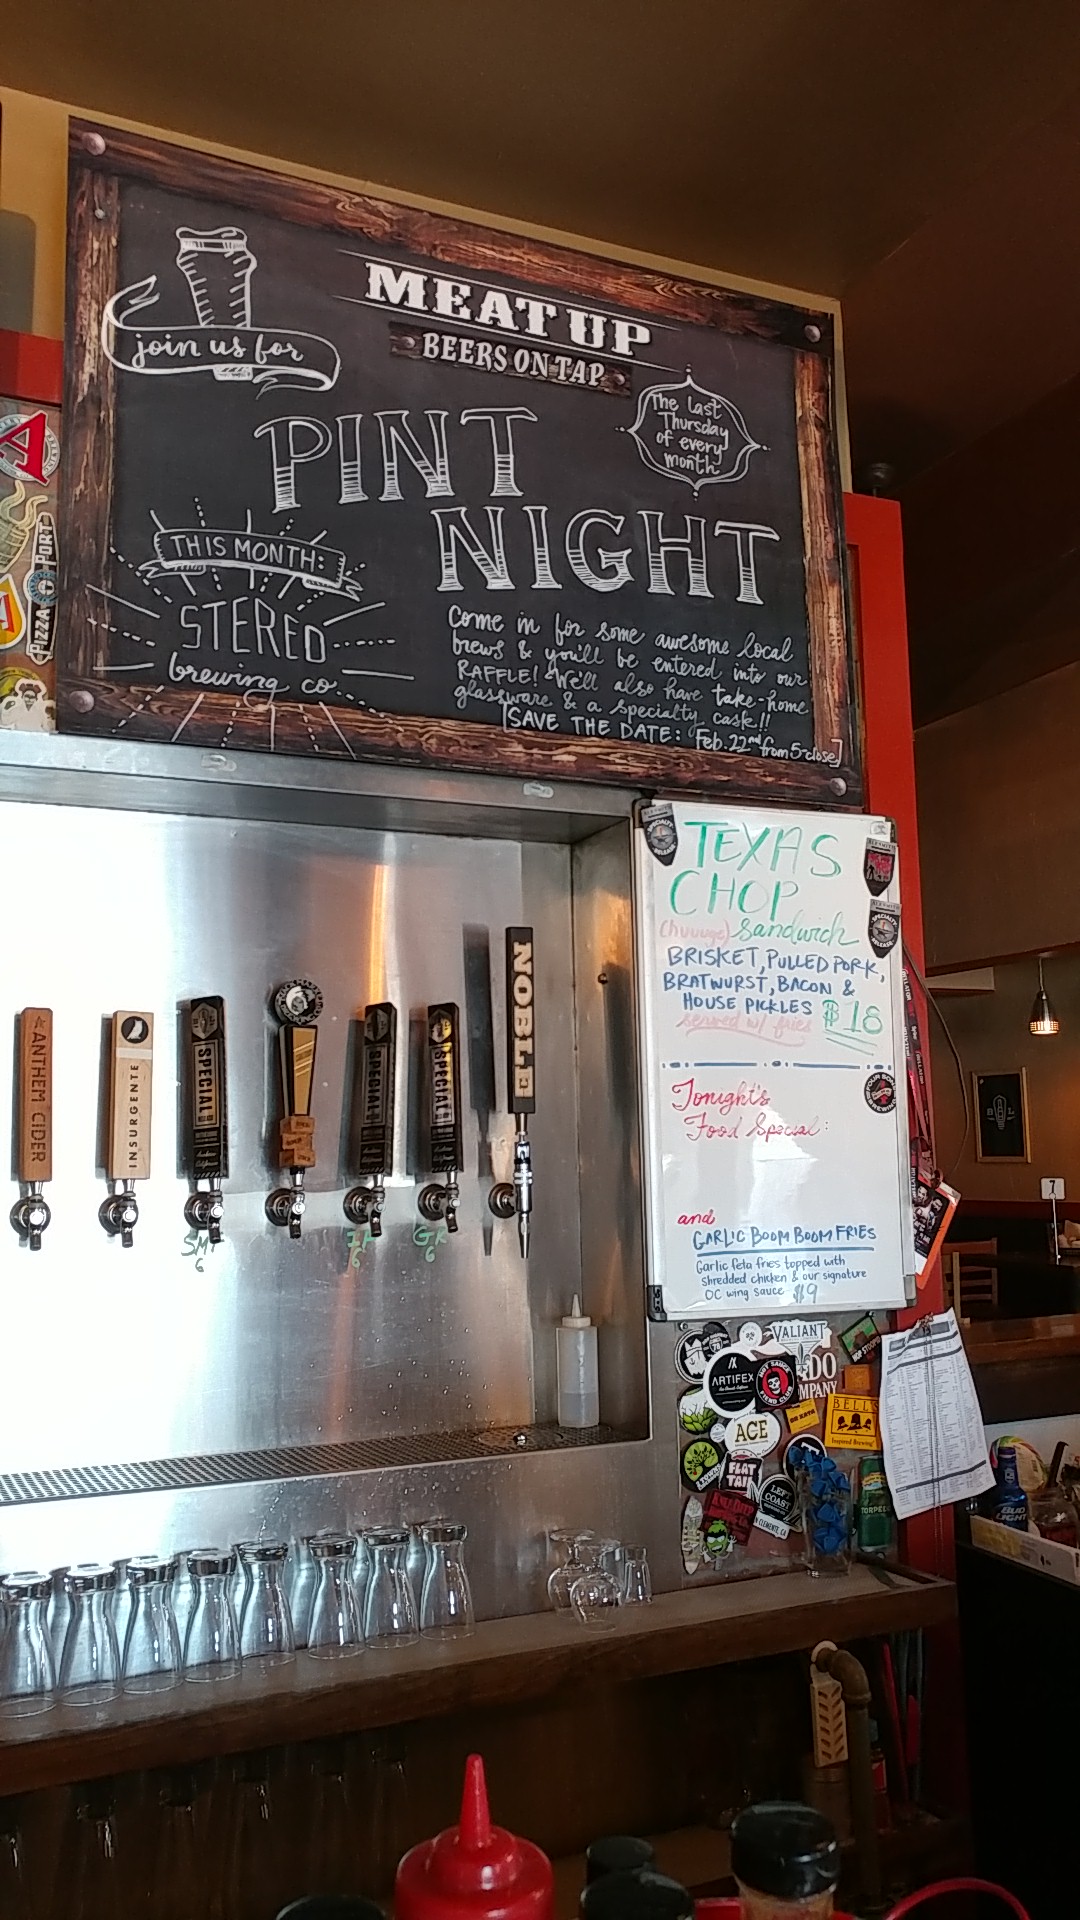 MEAT UP
BEERS ON TAP
join us for
PINT
NIGHT
The last
Thursday
of every
month
THIS MONTH:
STEREO
brewing co.
Come in for some awesome local
brews & you'll be entered into our
RAFFLE! We'll also have take-home
glassware & a specialty cask!!
[SAVE THE DATE: Feb. 22nd from 5-close]
A
PIZZA PORT
TEXAS
CHOP
(huuuge) Sandwich
BRISKET, PULLED PORK,
BRATWURST, BACON &
HOUSE PICKLES $18
served w/ fries
Tonight's
Food Special:
and
GARLIC BOOM BOOM FRIES
Garlic feta fries topped with
shredded chicken & our signature
OC wing sauce $9
SPECIALTY
RELEASE
SPECIALTY
RELEASE
ANTHEM CIDER
INSURGENTE
SPECIAL
SPECIAL
SPECIAL
NOBLE
6
6
GR
6
7
B L
VALIANT
ARTIFEX
HOT SAUCE
FIEND CLUB
DO
MPANY
ACE
BELL'S
Inspired Brewing
FLAT
TAIL
LEFT
COAST
N CLEMENTE, CA
TORPEDO
BUD
LIGHT